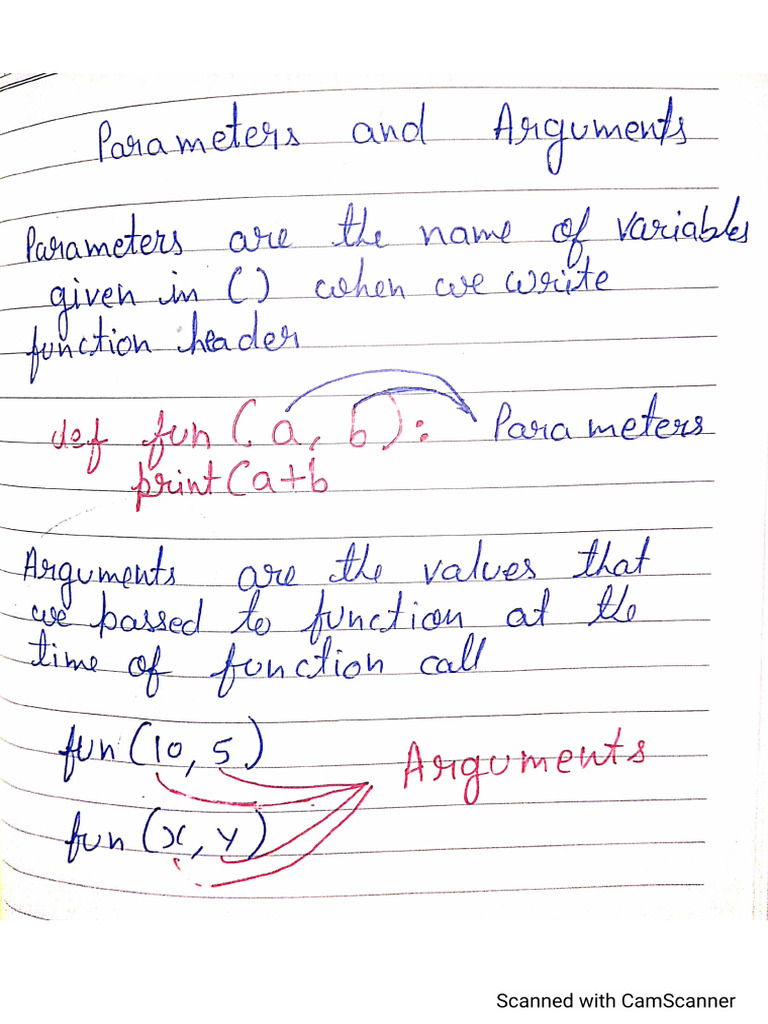 Parameters and Arguments
Parameters are the name of variables
given in () when we write
function header
def fun (a, b): Parameters
print(a+b
Arguments are the values that
we passed to function at the
time of function call
fun (10, 5)
Arguments
fun (x, y)
Scanned with CamScanner